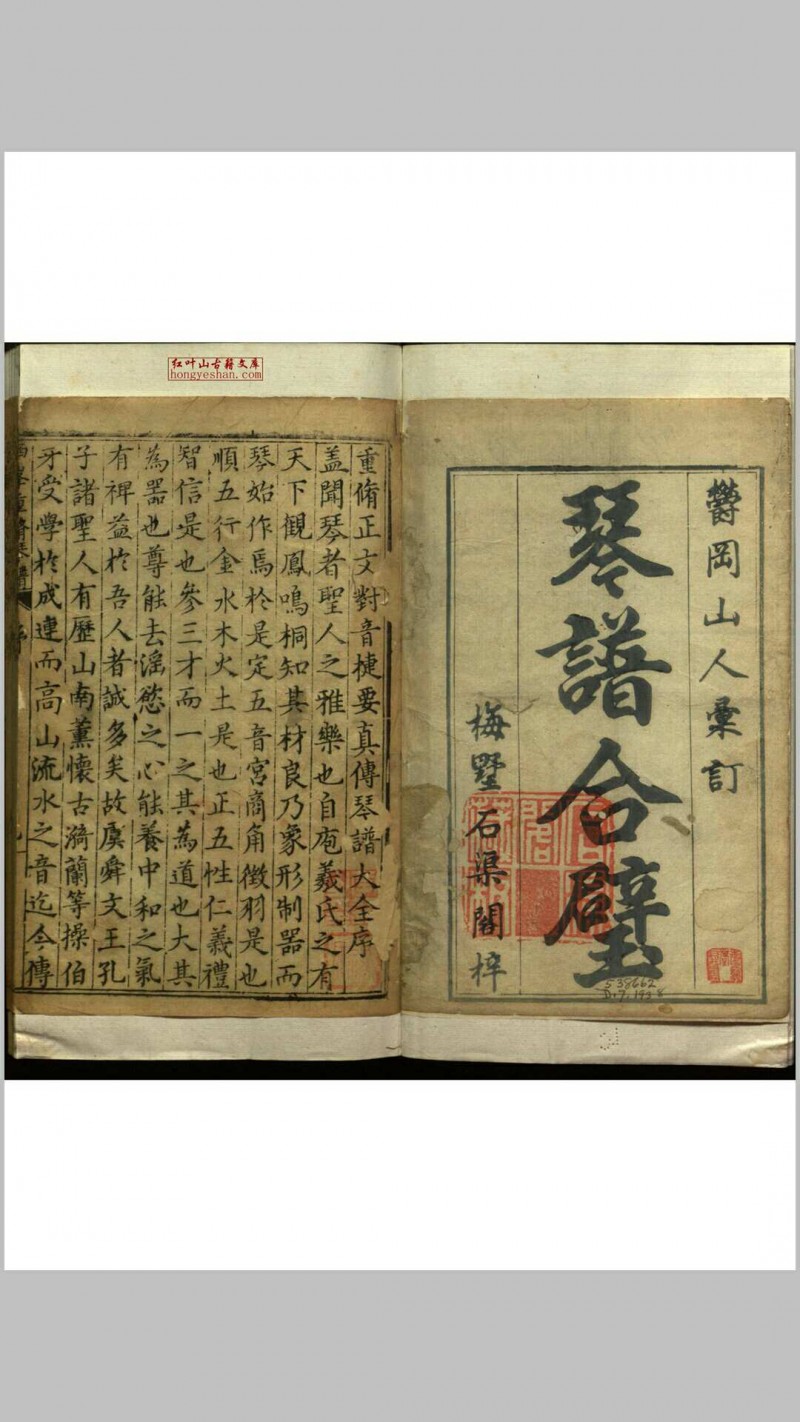 红叶山古籍文库
hongyeshan.com
欝岡山人彙訂
琴譜合璧
梅墅石渠閣梓
538662
D.7.1938
重脩正文對音㨗要真傳琴譜大全序
盖聞琴者聖人之雅樂也自庖羲氏之有
天下觀鳳鳴桐知其材良乃象形制器而
琴始作焉於是定五音宮商角徵羽是也
順五行金水木火土是也正五性仁義禮
智信是也參三才而一之其為道也大其
為器也尊能去滛慾之心能養中和之氣
有裨益於吾人者誠多矣故虞舜文王孔
子諸聖人有歷山南薰懷古漪蘭等操伯
牙受學於成連而高山流水之音迄今傳